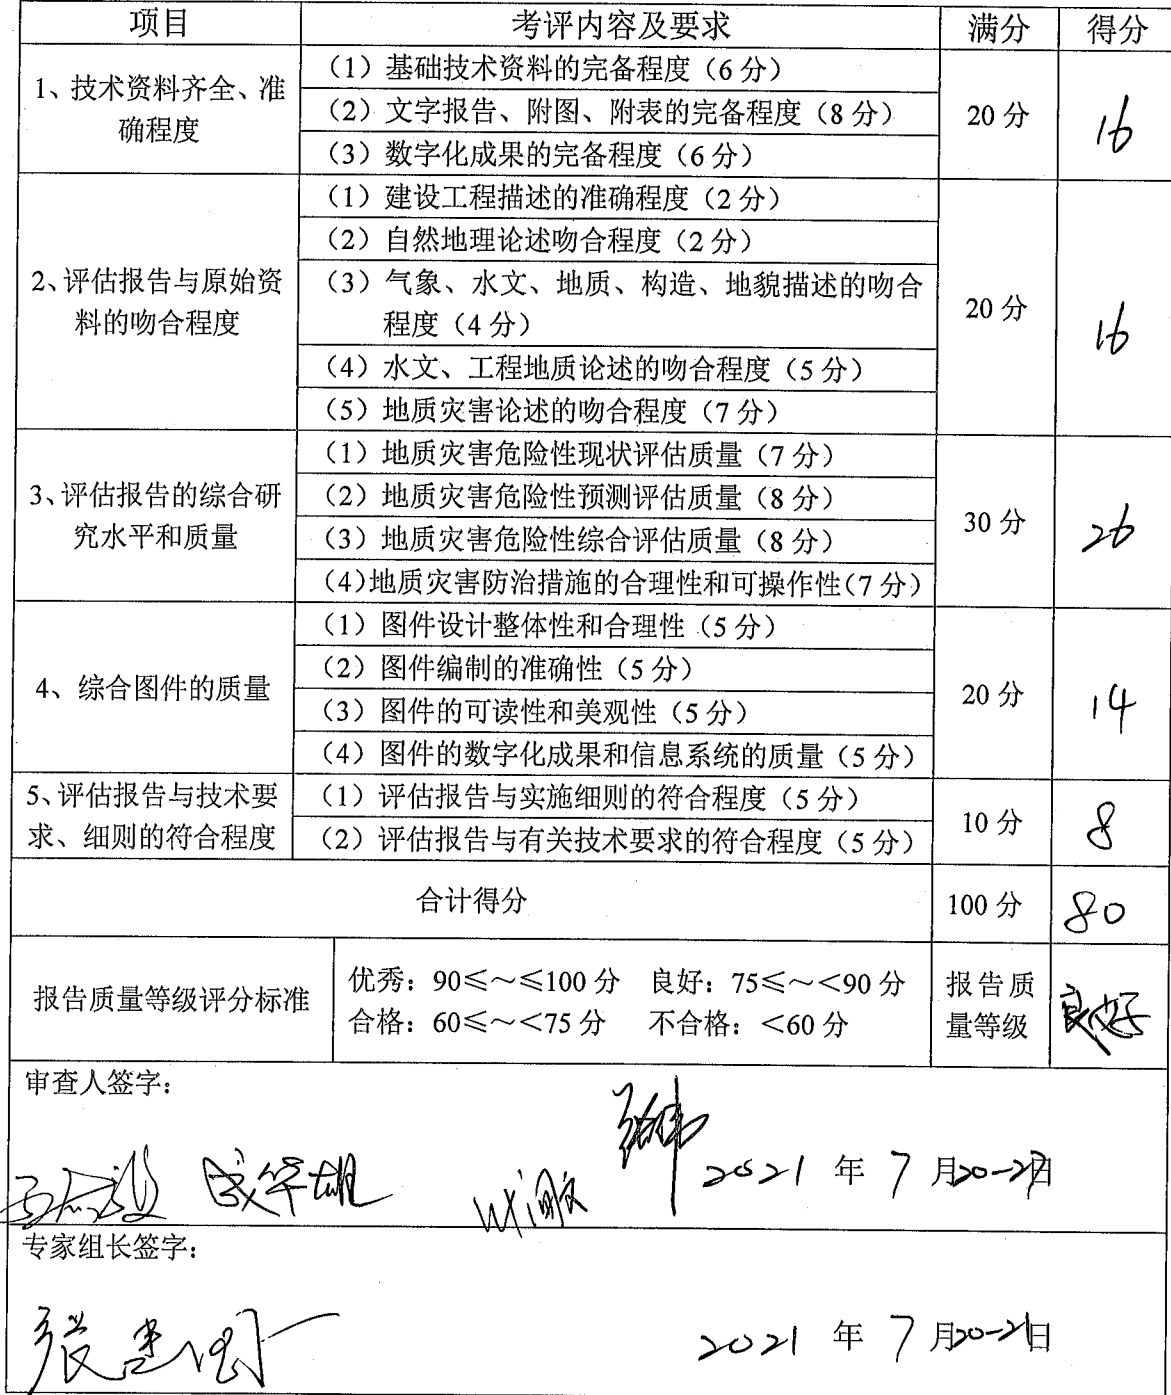 项目 考评内容及要求 满分 得分
1、技术资料齐全、准
确程度
（1）基础技术资料的完备程度（6分）
（2）文字报告、附图、附表的完备程度（8分）
（3）数字化成果的完备程度（6分）
20分 16
2、评估报告与原始资
料的吻合程度
（1）建设工程描述的准确程度（2分）
（2）自然地理论述吻合程度（2分）
（3）气象、水文、地质、构造、地貌描述的吻合
程度（4分）
（4）水文、工程地质论述的吻合程度（5分）
（5）地质灾害论述的吻合程度（7分）
20分 16
3、评估报告的综合研
究水平和质量
（1）地质灾害危险性现状评估质量（7分）
（2）地质灾害危险性预测评估质量（8分）
（3）地质灾害危险性综合评估质量（8分）
（4）地质灾害防治措施的合理性和可操作性（7分）
30分 26
4、综合图件的质量
（1）图件设计整体性和合理性（5分）
（2）图件编制的准确性（5分）
（3）图件的可读性和美观性（5分）
（4）图件的数字化成果和信息系统的质量（5分）
20分 14
5、评估报告与技术要
求、细则的符合程度
（1）评估报告与实施细则的符合程度（5分）
（2）评估报告与有关技术要求的符合程度（5分）
10分 8
合计得分 100分 80
报告质量等级评分标准
优秀：90≤～≤100分 良好：75≤～<90分
合格：60≤～<75分 不合格：<60分
报告质
量等级
良好
审查人签字：
2021 年 7 月20-21日
专家组长签字：
张建国
2021 年 7 月20-21日